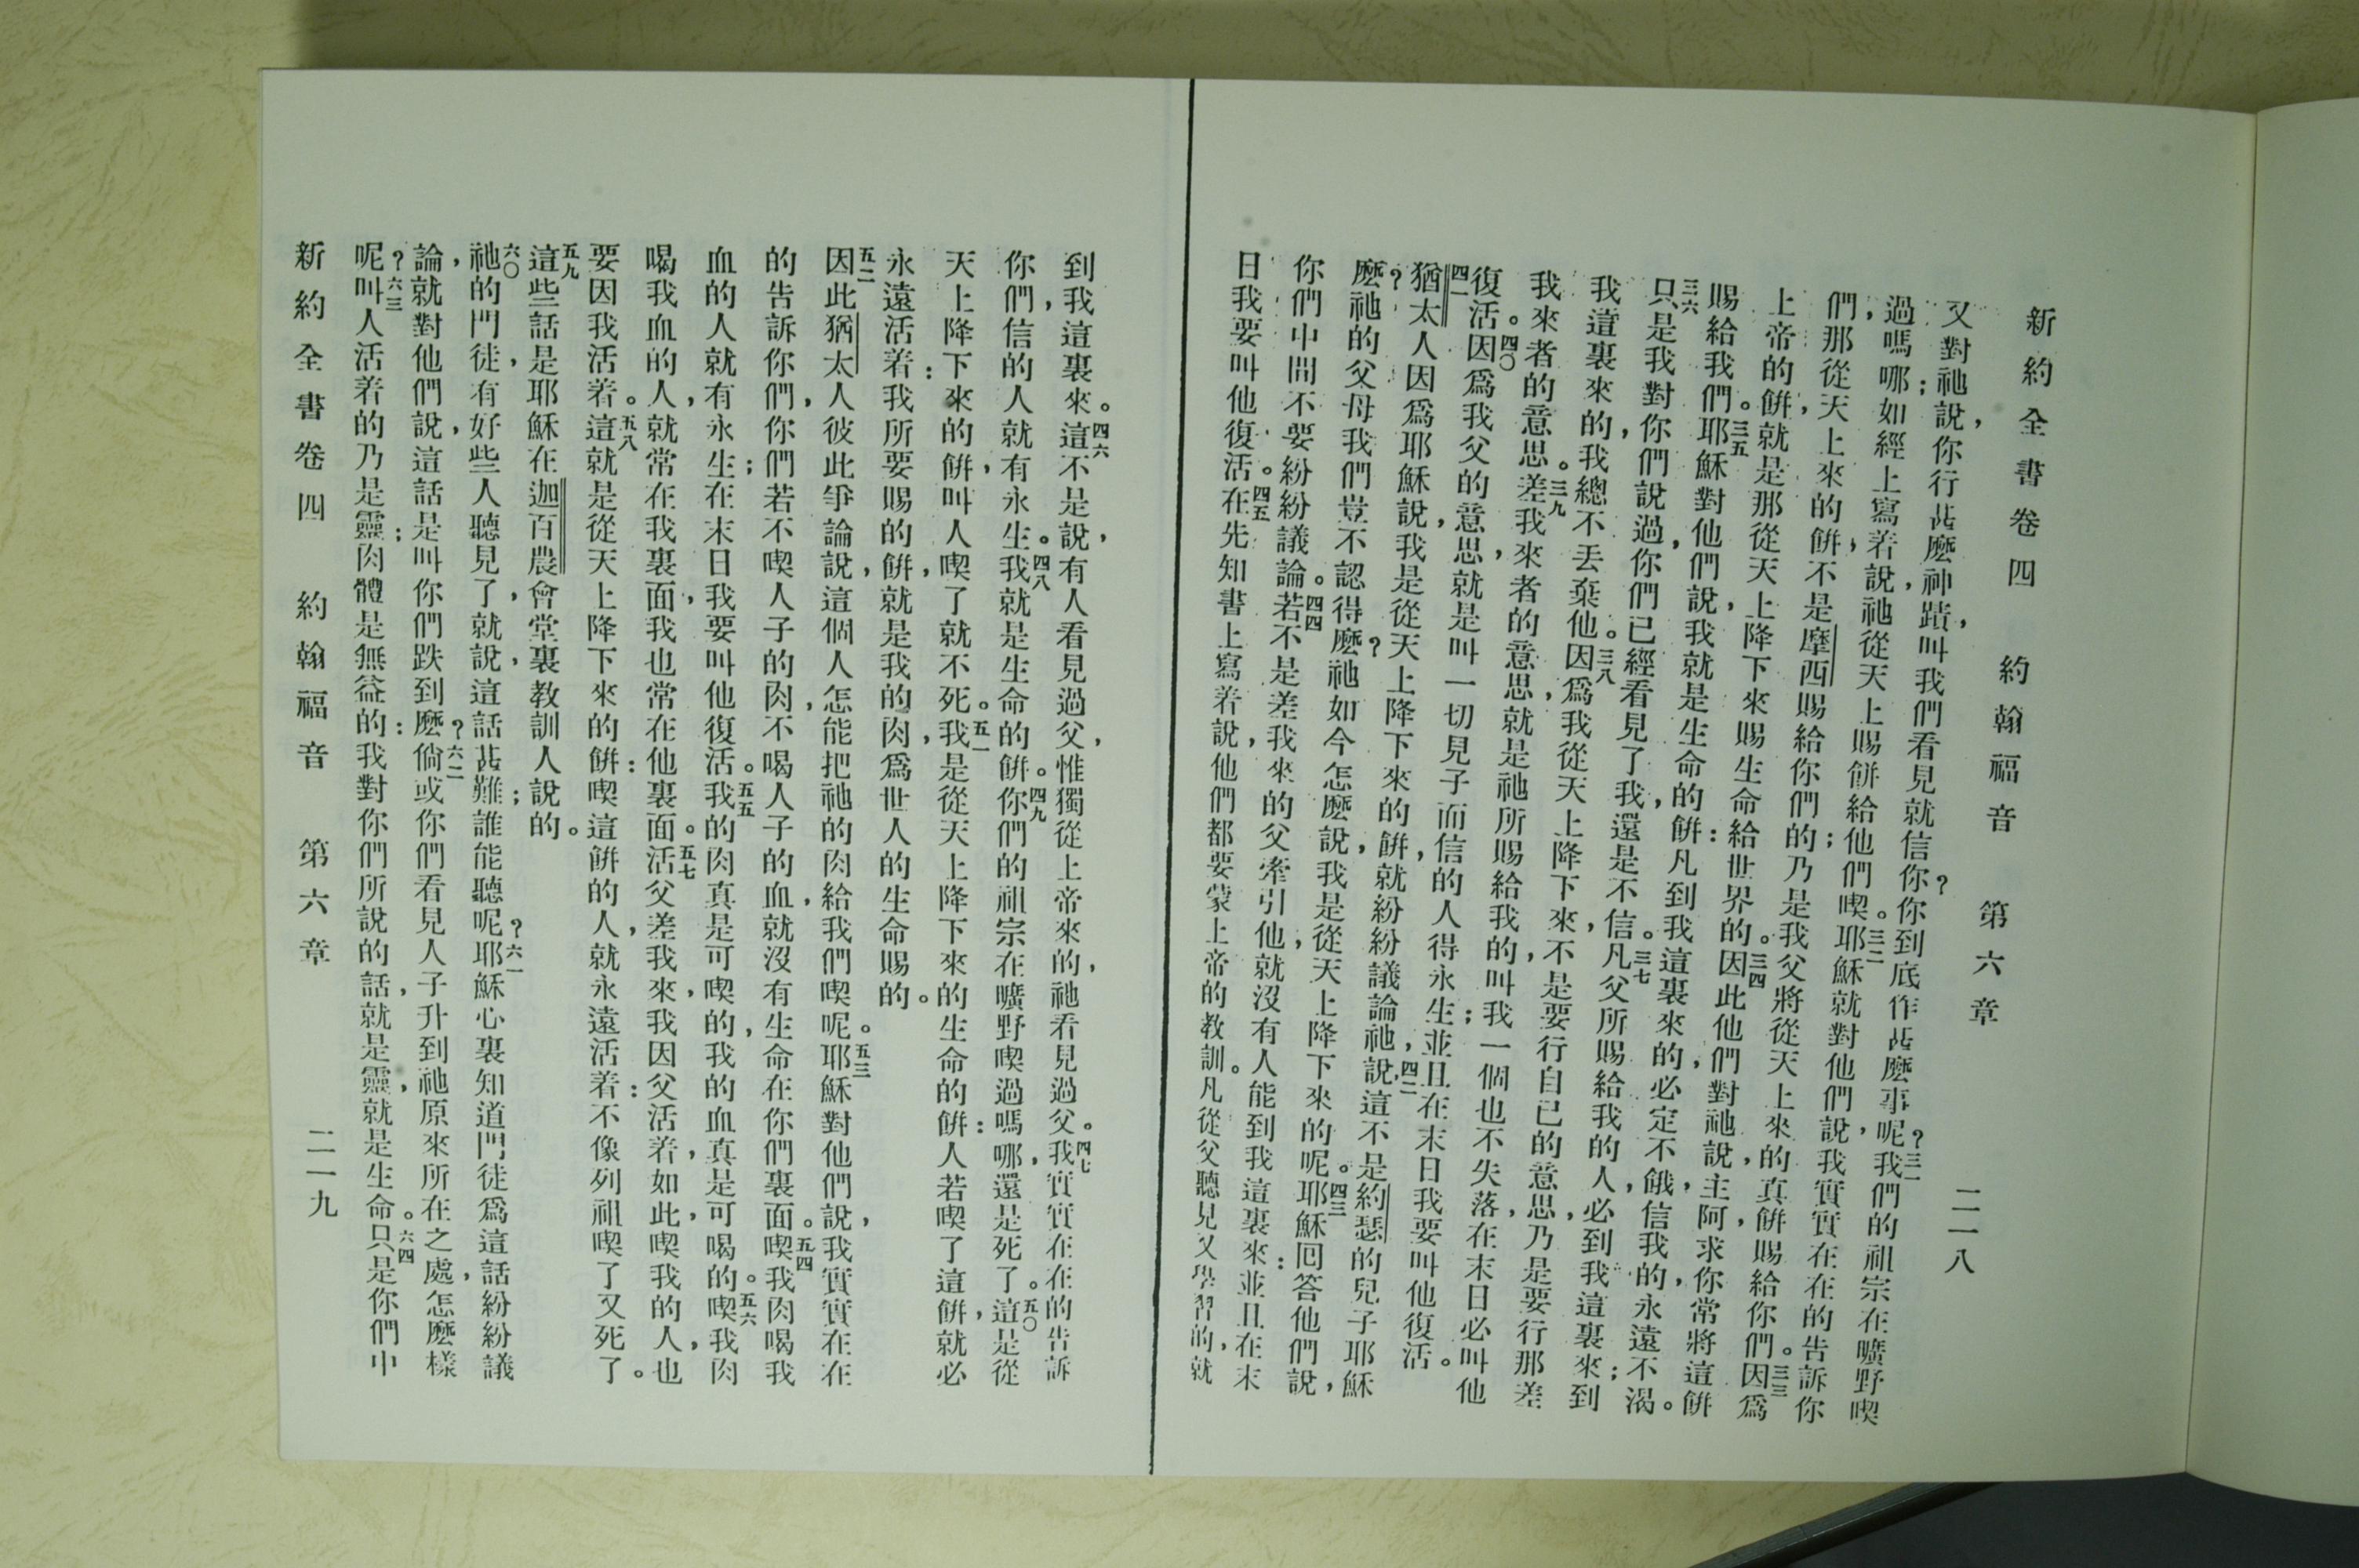 新約全書卷四 約翰福音 第六章 二一八
又對祂說,你行甚麼神蹟,叫我們看見就信你?你到底作甚麼事呢?三一我們的祖宗在曠野喫
過嗎哪;如經上寫着說,祂從天上賜餅給他們喫。三二耶穌就對他們說,我實實在在的告訴你
們,那從天上來的餅,不是摩西賜給你們的;乃是我父將從天上來的真餅賜給你們。三三因爲
上帝的餅,就是那從天上降下來賜生命給世界的。三四因此他們對祂說,主阿,求你常將這餅
賜給我們。三五耶穌對他們說,我就是生命的餅:凡到我這裏來的,必定不餓,信我的,永遠不渴。
三六只是我對你們說過,你們已經看見了我,還是不信。三七凡父所賜給我的人,必到我這裏來;到
我這裏來的,我總不丟棄他。三八因爲我從天上降下來,不是要行自己的意思,乃是要行那差
我來者的意思。三九差我來者的意思,就是祂所賜給我的,叫我一個也不失落,在末日必叫他
復活。四〇因爲我父的意思,就是叫一切見子而信的人得永生;並且在末日我要叫他復活。
四一猶太人因爲耶穌說,我是從天上降下來的餅,就紛紛議論祂,四二說這不是約瑟的兒子耶穌
麼?祂的父母我們豈不認得麼?祂如今怎麼說,我是從天上降下來的呢。四三耶穌回答他們說,
你們中間不要紛紛議論。四四若不是差我來的父牽引他,就沒有人能到我這裏來:並且在末
日我要叫他復活。四五在先知書上寫着說,他們都要蒙上帝的教訓。凡從父聽見又學習的,就
到我這裏來。四六這不是說,有人看見過父,惟獨從上帝來的,祂看見過父。四七我實實在在的告訴
你們,信的人就有永生。四八我就是生命的餅。四九你們的祖宗在曠野喫過嗎哪,還是死了。五〇這是從
天上降下來的餅,叫人喫了就不死。五一我是從天上降下來的生命的餅:人若喫了這餅,就必
永遠活着:我所要賜的餅,就是我的肉,爲世人的生命賜的。
五二因此猶太人彼此爭論說,這個人怎能把祂的肉給我們喫呢。五三耶穌對他們說,我實實在在
的告訴你們,你們若不喫人子的肉,不喝人子的血,就沒有生命在你們裏面。五四喫我肉喝我
血的人,就有永生;在末日我要叫他復活。五五我的肉真是可喫的,我的血真是可喝的。五六喫我肉
喝我血的人,就常在我裏面,我也常在他裏面。五七活父差我來,我因父活着,如此,喫我的人,也
要因我活着。五八這就是從天上降下來的餅:喫這餅的人,就永遠活着:不像列祖喫了又死了。
五九這些話是耶穌在迦百農會堂裏教訓人說的。
六〇祂的門徒,有好些人聽見了,就說,這話甚難;誰能聽呢?六一耶穌心裏知道門徒爲這話紛紛議
論,就對他們說,這話是叫你們跌到麼?六二倘或你們看見人子升到祂原來所在之處,怎麼樣
呢?六三叫人活着的乃是靈;肉體是無益的:我對你們所說的話,就是靈,就是生命。六四只是你們中
新約全書卷四 約翰福音 第六章 二一九